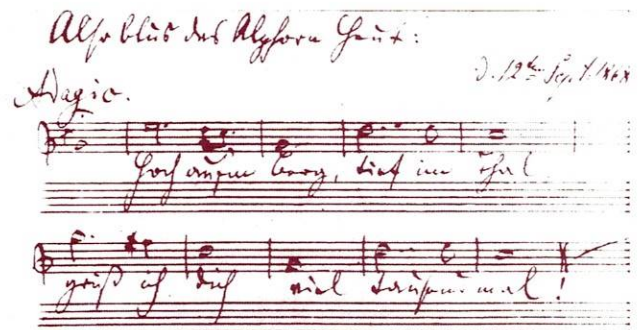 Also blus das Alphorn heut:
d. 12ten Sept. 1868
Adagio.
Hoch aufm Berg, tief im Thal
grüß ich dich viel tausendmal!